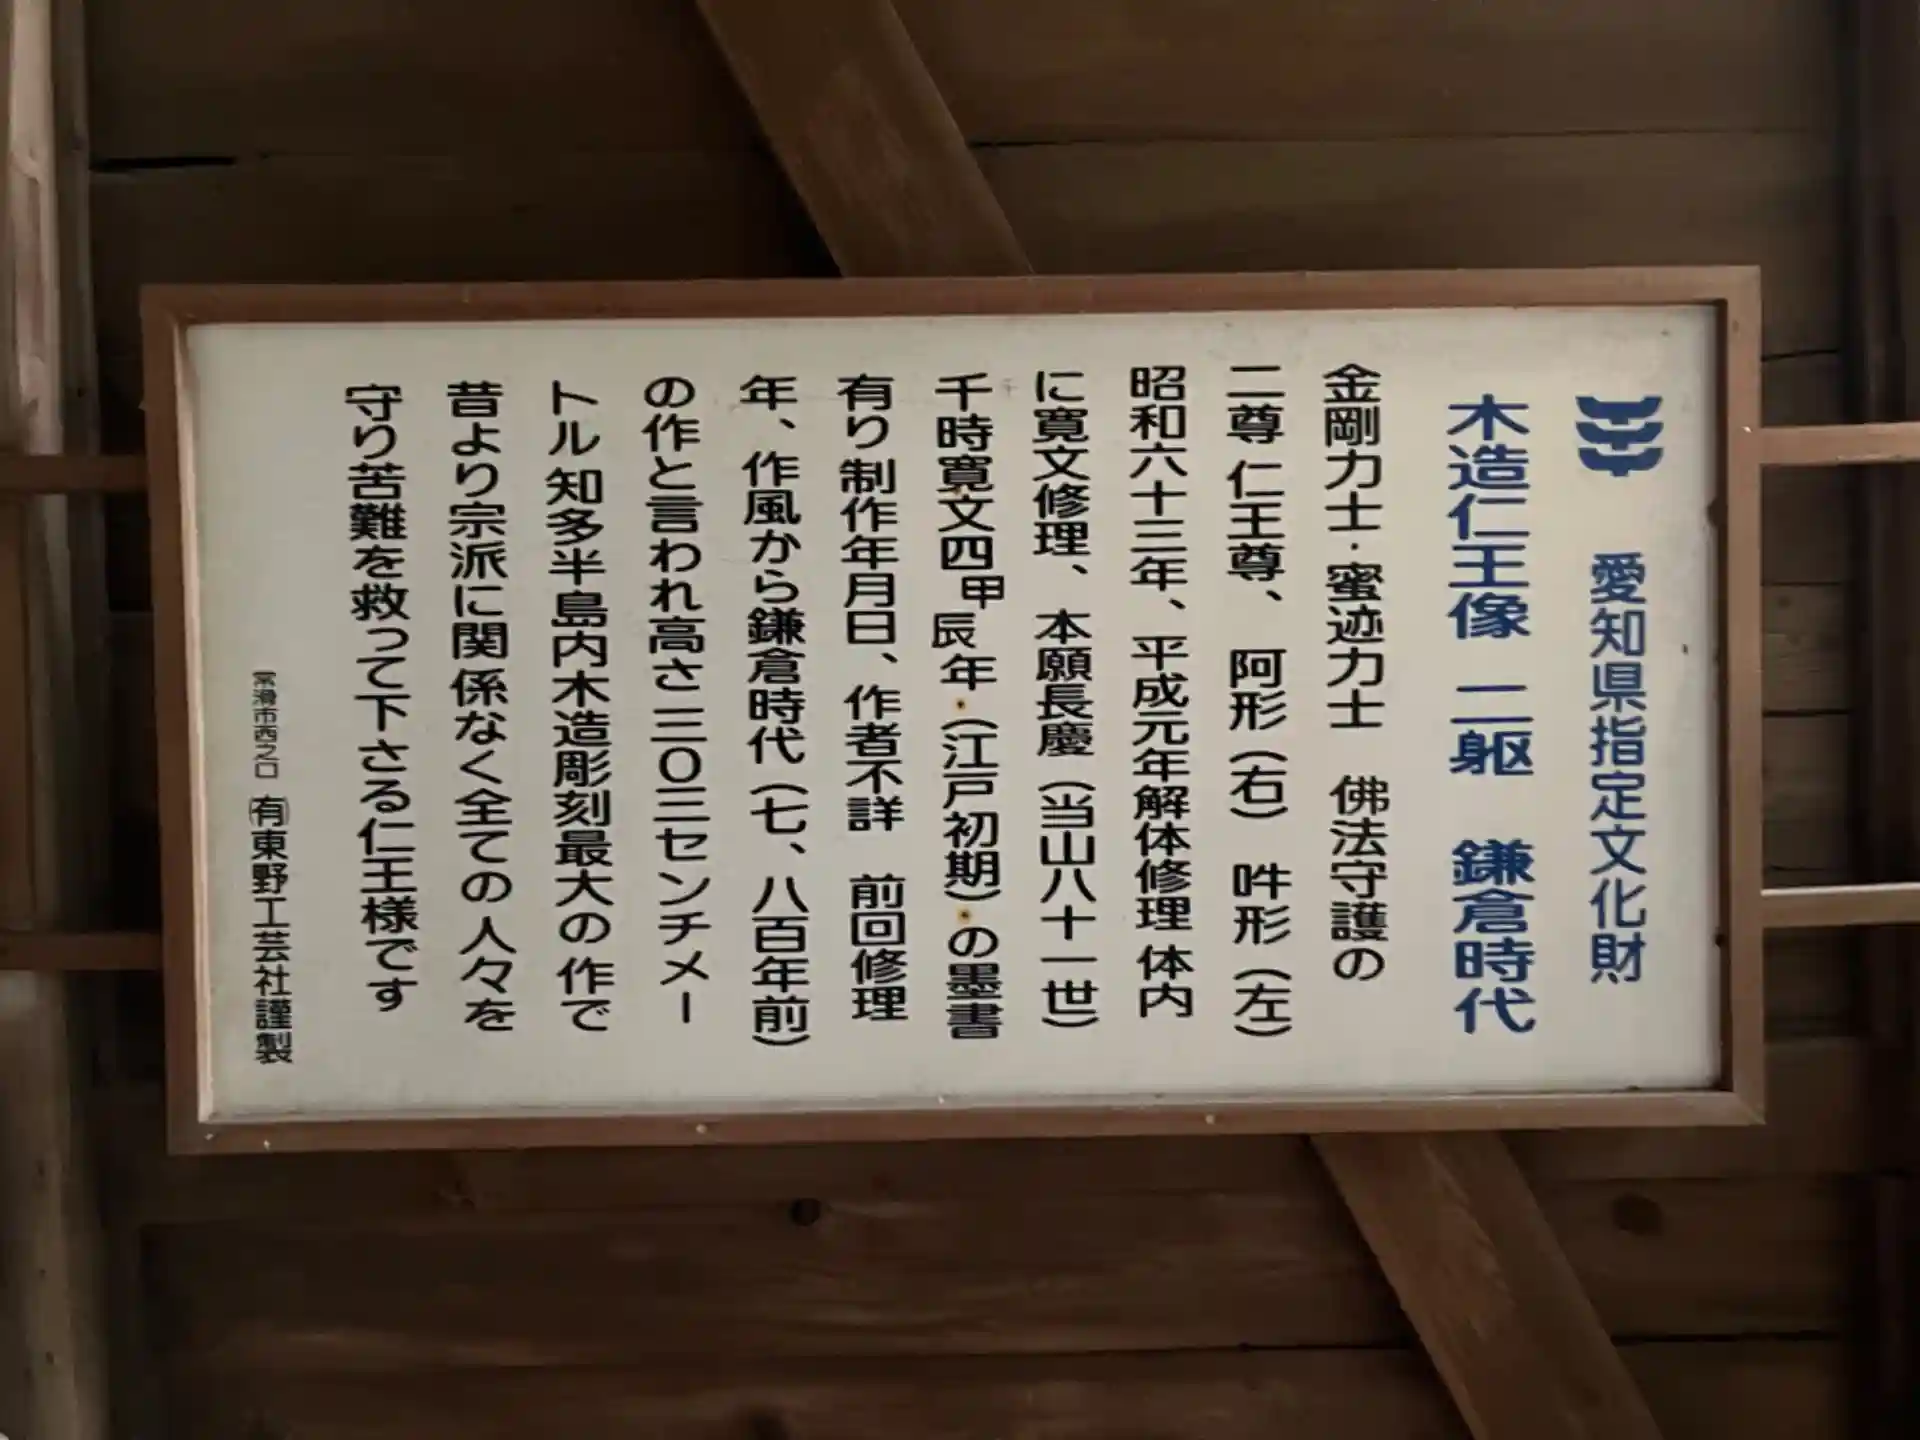 愛知県指定文化財
木造仁王像 二躯 鎌倉時代
金剛力士・蜜迹力士 佛法守護の
二尊 仁王尊、 阿形(右) 吽形(左)
昭和六十三年、平成元年解体修理 体内
に寛文修理、本願長慶(当山八十一世)
千時寛文四甲辰年・(江戸初期)・の墨書
有り制作年月日、作者不詳 前回修理
年、作風から鎌倉時代(七、八百年前)
の作と言われ高さ三〇三センチメー
トル 知多半島内木造彫刻最大の作で
昔より宗派に関係なく全ての人々を
守り苦難を救って下さる仁王様です
常滑市西之口 ㈲東野工芸社謹製